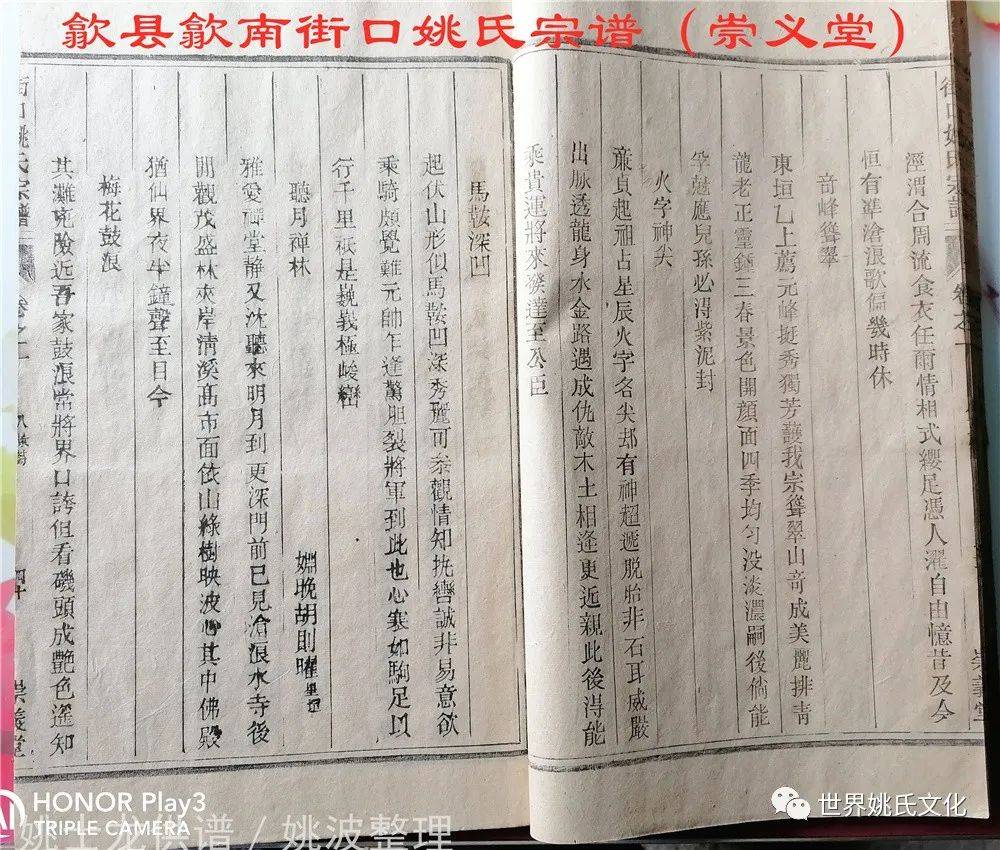 歙县歙南街口姚氏宗谱（崇义堂）
街口姚氏宗譜
卷之一
崇義堂
涇渭合周流食衣任雨情相式纓足憑人濯自由憶昔及今
恒有準滄浪歌偏幾時休
奇峰聳翠
東垣乙上薦元峰挺秀獨芳護我宗聳翠山奇成美麗排青
龍老正靈鍾三春景色開顏面四季均勻没淡濃嗣後倘能
竿兢應兒孫必得紫泥封
火字神尖
亷貞起祖占星辰火字名尖却有神超遞脱胎非石耳威嚴
出脉透龍身水金路遇成仇敵木土相逢更近親此後得能
乘貴運將來發達至公臣
馬鞍深凹
起伏山形似馬鞍凹深秀麗可叅觀情知扰轡誠非易意欲
乘騎頗覺難元帥乍逢驚胆裂將軍到此也心寒如駒足以
行千里祗是巍峩極峻巒
聽月禅林
姻晚胡則曜
雅愛禪堂静又沈聽來明月到更深門前已見滄浪水寺後
閒觀茂盛林夾岸清溪髙市面依山綠樹映波心其中佛殿
猶仙界夜半鐘聲至日今
梅花鼓浪
其灘虎險近吾家鼓浪常將界口誇但看磯頭成艶色遥知
街口姚氏宗譜
卷之一
四十
崇義堂
HONOR Play3
TRIPLE CAMERA
姚士龙供谱 / 姚波整理
世界姚氏文化